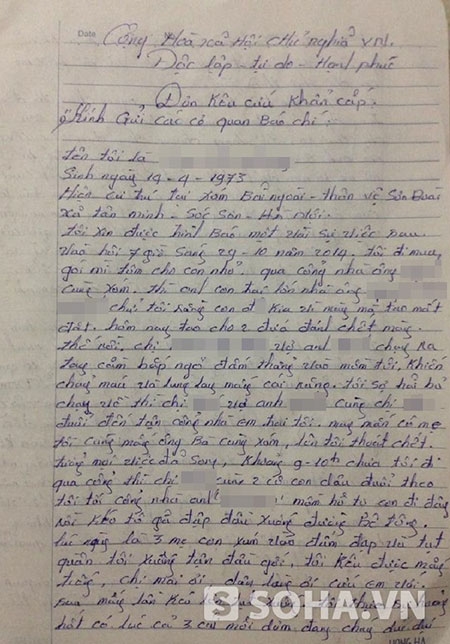 Date
Cộng Hoà xã Hội chủ nghĩa VN.
Độc lập - tự do - Hạnh phúc
Đơn Kêu cứu Khẩn cấp.
Kính Gửi các cơ quan Báo chí:
tên tôi là
Sinh ngày 14-4-1973
Hiện cư trú tại xóm Bờ ngoài - thôn vệ Sơn Đoài
xã tân minh - Sóc Sơn - Hà Nội.
tôi xin được trình Báo một vài sự việc sau.
Vào hồi 7 giờ Sáng 29-10 năm 2014. tôi đi mua
gói mì tôm cho con nhỏ. qua cổng nhà ông
Cùng xóm. thì anh con trai lớn nhà ông
chửi tôi rằng con ơi Kia vì mày mà tao mất
đất. hôm nay tao cho 2 đứa đánh chết mày.
thế rồi. chị vợ anh chạy Ra
tay cầm bắp ngô đấm thẳng vào mồm tôi. Khiến
chảy máu và lung lay mấy cái răng. tôi sợ hãi bỏ
chạy về thì chị vợ anh cùng chị
đuổi đến tận cổng nhà em trai tôi. may mắn có mẹ
tôi cùng mấy ông Bà cùng xóm, lên tôi thoát chết.
tưởng mọi việc đã Song, Khoảng 9-10h trưa tôi đi
qua cổng thì chị cùng 2 cô con dâu đuổi theo
tôi tới cổng nhà anh mồm hô to con đĩ đây
rồi Kéo tôi gì đập đầu xuống đường Bê tông.
lúc này là 3 mẹ con xúm vào đấm đập và tụt
quần tôi xuống tận đầu gối, tôi Kêu được mấy
tiếng, chị mai ơi, dân làng ơi cứu em với.
Sau mấy lần
hét có lúc cả 3 chị mới dừng chạy
SOHA.VN